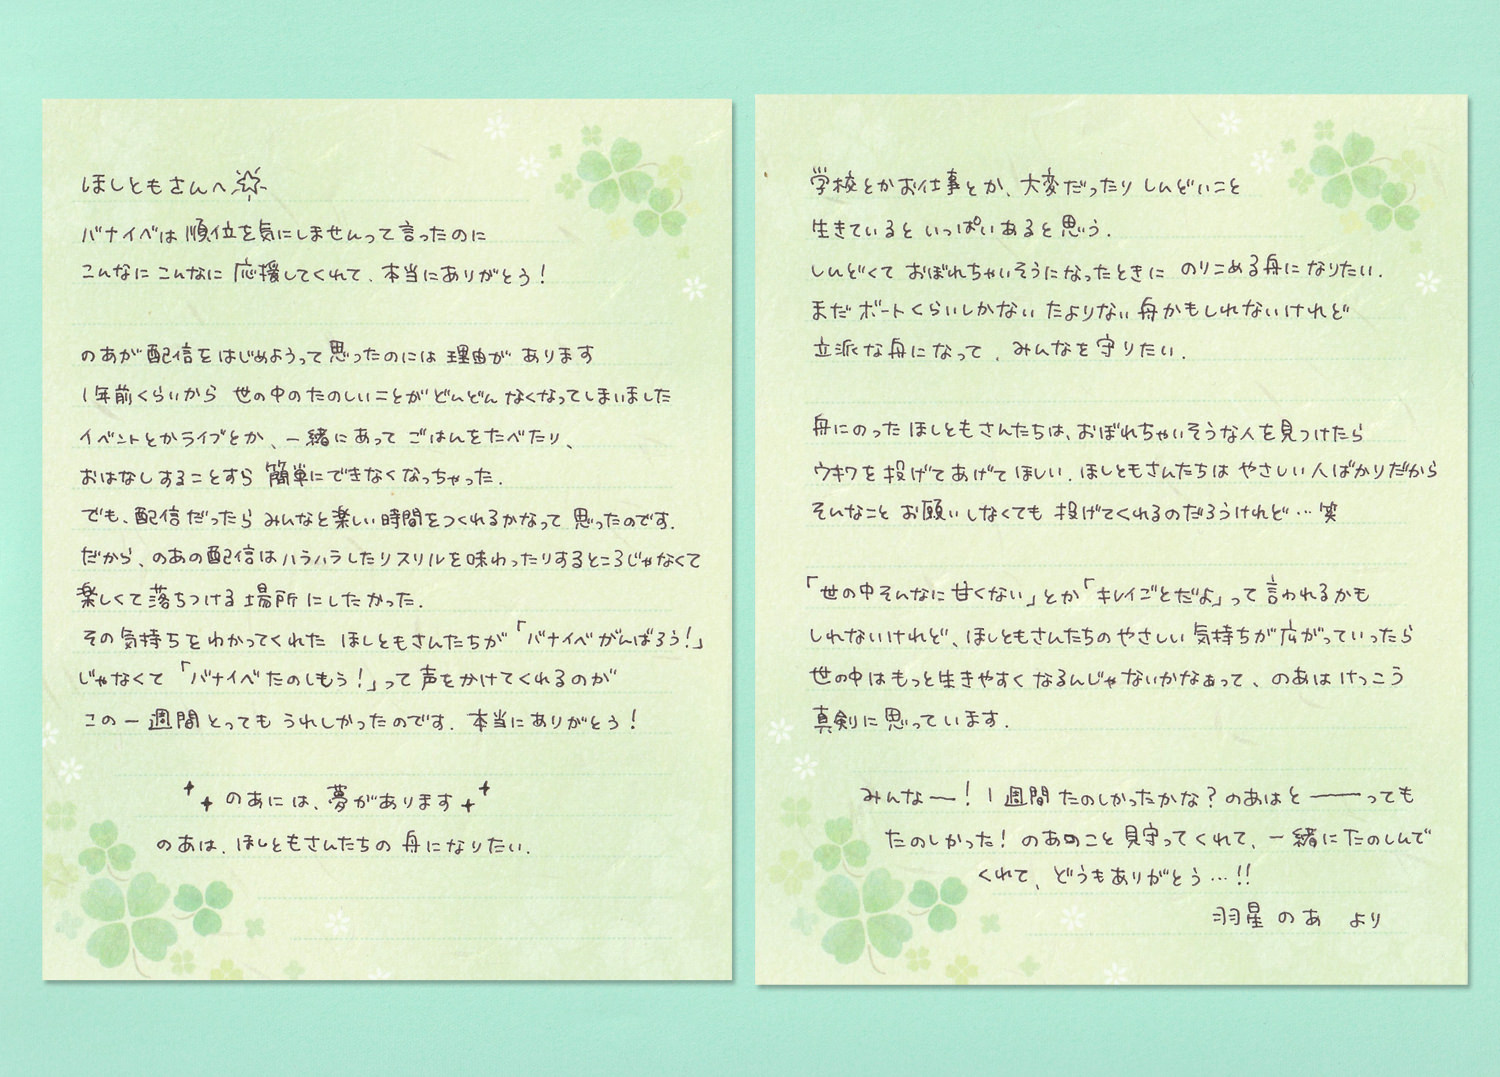 ほしともさんへ☆
バナイベは 順位を気にしませんって言ったのに
こんなに こんなに 応援してくれて、本当にありがとう！
のあが配信をはじめようって思ったのには 理由が あります
1年前くらいから 世の中のたのしいことがどんどん なくなってしまいました
イベントとかライブとか、一緒にあって ごはんをたべたり、
おはなしすることすら 簡単にできなくなっちゃった.
でも、配信だったら みんなと楽しい時間をつくれるかなって 思ったのです.
だから、のあの配信はハラハラしたりスリルを味わったりするところじゃなくて
楽しくて落ちつける場所にしたかった.
その気持ちをわかってくれた ほしともさんたちが「バナイベがんばろう!」
じゃなくて 「バナイベたのしもう!」って声をかけてくれるのが
この一週間とっても うれしかったのです. 本当にありがとう!
のあには、夢があります
のあは、ほしともさんたちの 舟になりたい.
学校とかお仕事とか、大変だったり しんどいこと
生きていると いっぱいあると思う.
しんどくて おぼれちゃいそうになったときに のりこめる舟になりたい.
まだボートくらいしかない たよりない舟かもしれないけれど
立派な舟になって、みんなを守りたい.
舟にのった ほしともさんたちは、おぼれちゃいそうな人を見つけたら
ウキワを投げてあげてほしい. ほしともさんたちは やさしい人ばかりだから
そんなこと お願いしなくても 投げてくれるのだろうけれど…笑
「世の中そんなに甘くない」とか「キレイごとだよ」って言われるかも
しれないけれど、ほしともさんたちのやさしい気持ちが広がっていったら
世の中はもっと生きやすくなるんじゃないかなぁって、のあはけっこう
真剣に思っています.
みんなー! 1週間たのしかったかな? のあはと――っても
たのしかった! のあのこと見守ってくれて、一緒にたのしんで
くれて、どうもありがとう…!!
羽星のあ より